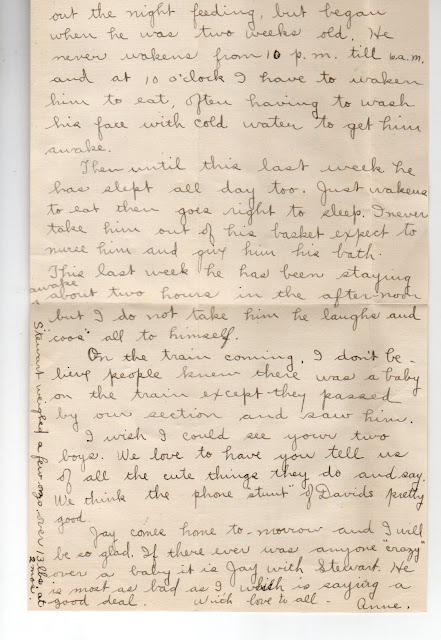 out the night feeding, but began
when he was two weeks old. He
never wakens from 10 p.m. till 6 a.m.
and at 10 o'clock I have to waken
him to eat, often having to wash
his face with cold water to get him
awake.
Then until this last week he
has slept all day too. Just wakens
to eat then goes right to sleep. I never
take him out of his basket expect to
nurse him and give him his bath.
This last week he has been staying
awake
about two hours in the afternoon
but I do not take him he laughs and
"coos" all to himself.
On the train coming, I don't be-
lieve people knew there was a baby
on the train except they passed
by our section and saw him.
I wish I could see your two
boys. We love to have you tell us
of all the cute things they do and say.
We think the phone "stunt" of Davids pretty
good.
Jay comes home to-morrow and I will
be so glad. If there ever was anyone "crazy"
over a baby it is Jay with Stewart. He
is most as bad as I which is saying a
good deal. With love to all - Anne.
Stewart weighed a few ozs over 13 lbs. at
2 mos.